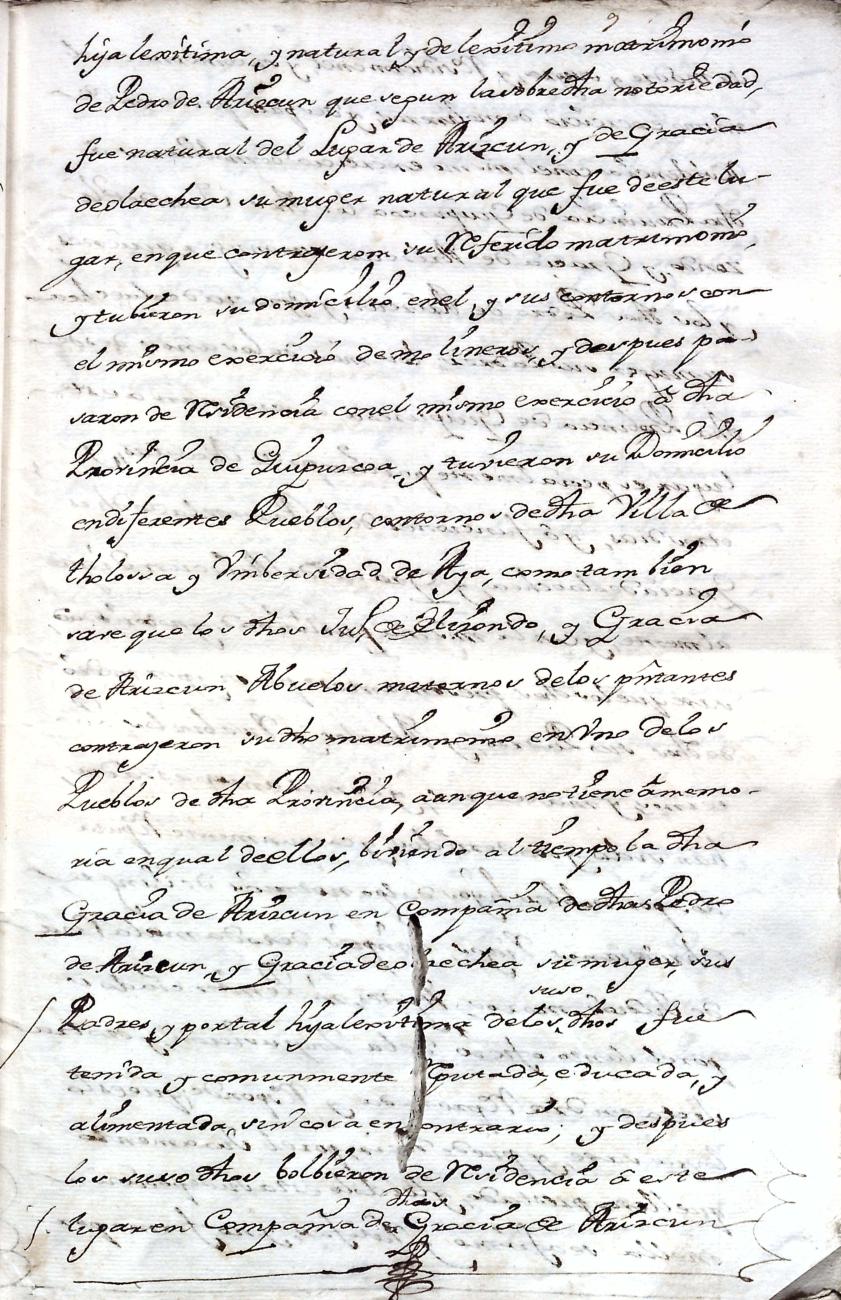 hija lexitima, y natural y de lexitimo matrimonio
de Pedro de Arizcun que segun la sobredha notoriedad,
fue natural del Lugar de Arizcun, y de Gracia
deolaechea su muger natural que fue de este lu-
gar, en que contrajeron su Referido matrimonio,
y tubieron su domicilio en el, y sus contornos con
el mismo exercicio de molineros, y despues pa-
saron de Residencia con el mismo exercicio â dha
Provincia de Guipuzcoa, y tuvieron su Domicilio
en diferentes Pueblos, contornos de dha Villa de
tholossa y Vnibersidad de Aya, como tambien
save que los dhos Jus de Elizondo, y Gracia
de Arizcun Abuelos maternos de los pntantes
contrajeron su dho matrimonio en Vno de los
Pueblos de dha Provincia, aunque no tiene â memo-
ria en qual de ellos, biviendo al tiempo la dha
Gracia de Arizcun en Compañia de dhos Pedro
de Arizcun, y Gracia de olaechea su muger, sus
Padres, y por tal hija lexitima de los suso dhos fue
tenida y comunmente Reputada, educada, y
alimentada, sin cosa en contrario; y despues
los suso dhos bolbieron de Residencia â este
lugar en Compañia de dhas Gracia de Arizcun